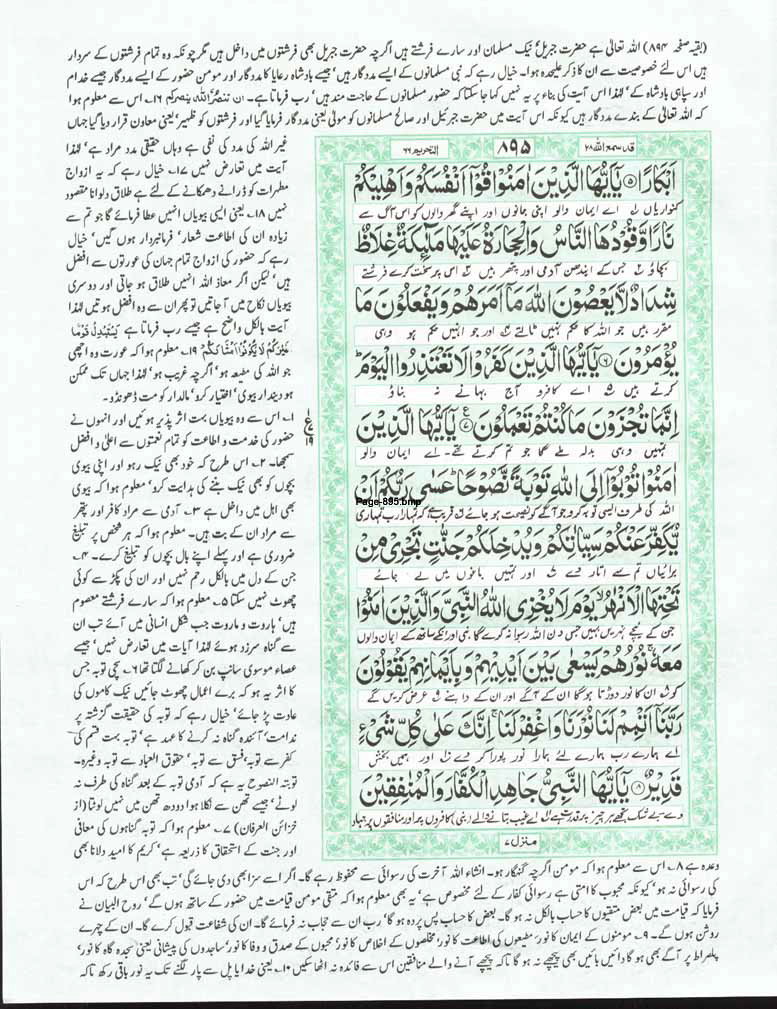 (بقیہ صفحہ ۸۹۴) اللہ تعالیٰ ہے حضرت جبریل نیک مسلمان اور سارے فرشتے ہیں اگرچہ حضرت جبریل بھی فرشتوں میں داخل ہیں مگر چونکہ وہ تمام فرشتوں کے سردار
ہیں اس لئے خصوصیت سے ان کا ذکر علیحدہ ہوا۔ خیال رہے کہ نبی مسلمانوں کے ایسے مددگار ہیں' جیسے بادشاہ رعایا کا مددگار اور مومن حضور کے ایسے مددگار جیسے خدام
اور سپاہی بادشاہ کے' لہٰذا اس آیت کی بناء پر یہ نہیں کہا جا سکتا کہ حضور مسلمانوں کے حاجت مند ہیں' رب فرماتا ہے۔ ان تنصروا اللہ ینصرکم ۱۶۔ اس سے معلوم ہوا
کہ اللہ تعالیٰ کے بندے مددگار ہیں کیونکہ اس آیت میں حضرت جبرئیل اور صالح مسلمانوں کو مولیٰ یعنی مددگار فرمایا گیا اور فرشتوں کو ظہیر' یعنی معاون قرار دیا گیا جہاں
غیر اللہ کی مدد کی نفی ہے وہاں حقیقی مدد مراد ہے' لہٰذا
آیت میں تعارض نہیں ۱۷۔ خیال رہے کہ یہ ازواج
مطہرات کو ڈرانے دھمکانے کے لئے ہے طلاق دلوانا مقصود
نہیں ۱۸۔ یعنی ایسی بیویاں انہیں عطا فرمائے گا جو تم سے
زیادہ ان کی اطاعت شعار' فرمانبردار ہوں گیں' خیال
رہے کہ حضور کی ازواج تمام جہان کی عورتوں سے افضل
ہیں' لیکن اگر معاذ اللہ انہیں طلاق ہو جاتی اور دوسری
بیویاں نکاح میں آ جاتیں تو پھر ان سے وہ افضل ہوتیں لہٰذا
آیت بالکل واضح ہے جیسے رب فرماتا ہے یَسْتَبْدِلْ قَوْمًا
غَیْرَکُمْ لَا یَکُوْنُوْا اَمْثَالَکُمْ ۱۹۔ معلوم ہوا کہ عورت وہ اچھی
جو اللہ کی مطیعہ ہو' اگرچہ غریب ہو' لہٰذا جہاں تک ممکن
ہو دیندار بیوی' اختیار کرو' مالدار کو مت ڈھونڈو۔
۱۔ اس سے وہ بیویاں بہت اثر پذیر ہوئیں اور انہوں نے
حضور کی خدمت و اطاعت کو تمام نعمتوں سے اعلیٰ و افضل
سمجھا۔ ۲۔ اس طرح کہ خود بھی نیک رہو اور اپنی بیوی
بچوں کو بھی نیک بننے کی ہدایت کرو' معلوم ہوا کہ بیوی
بھی اہل میں داخل ہے ۳۔ آدمی سے مراد کافر اور پتھر
سے مراد ان کے بت ہیں۔ معلوم ہوا کہ ہر شخص پر تبلیغ
ضروری ہے اور پہلے اپنے بال بچوں کو تبلیغ کرے۔ ۴۔
جن کے دل میں بالکل رحم نہیں اور ان کی پکڑ سے کوئی
چھوٹ نہیں سکتا ۵۔ معلوم ہوا کہ سارے فرشتے معصوم
ہیں' ہاروت و ماروت جب شکل انسانی میں آئے تب ان
سے گناہ سرزد ہوئے لہٰذا آیات میں تعارض نہیں' جیسے
عصاء موسوی سانپ بن کر کھانے لگتا تھا ۶۔ سچی توبہ جس
کا اثر یہ ہو کہ برے اعمال چھوٹ جائیں نیک کاموں کی
عادت پڑ جائے' خیال رہے کہ توبہ کی حقیقت گزشتہ پر
ندامت' آئندہ گناہ نہ کرنے کا عہد ہے' توبہ بہت قسم کی
کفر سے توبہ' فسق سے توبہ' حقوق العباد سے توبہ وغیرہ۔
توبۃ النصوح یہ ہے کہ آدمی توبہ کے بعد گناہ کی طرف نہ
لوٹے' جیسے تھن سے نکلا ہوا دودھ تھن میں نہیں لوٹتا (از
خزائن العرفان) ۷۔ معلوم ہوا کہ توبہ گناہوں کی معافی
اور جنت کے استحقاق کا ذریعہ ہے' کریم کا امید دلانا بھی
قد سمع اللہ ۲۸
۸۹۵
التحریم ۶۶
اَبْكَارًا ۵ یٰۤاَیُّهَا الَّذِیْنَ اٰمَنُوْا قُوْۤا اَنْفُسَكُمْ وَ اَهْلِیْكُمْ
کنواریاں اے ایمان والو اپنی جانوں اور اپنے گھر والوں کو اس آگ سے
نَارًا وَّ قُوْدُهَا النَّاسُ وَ الْحِجَارَةُ عَلَیْهَا مَلٰٓىٕكَةٌ غِلَاظٌ
بچاؤ جس کے ایندھن آدمی اور پتھر ہیں اس پر سخت کرے فرشتے
شِدَادٌ لَّا یَعْصُوْنَ اللّٰهَ مَاۤ اَمَرَهُمْ وَ یَفْعَلُوْنَ مَا
مقرر ہیں جو اللہ کا حکم نہیں ٹالتے اور جو انہیں حکم ہو وہی
یُؤْمَرُوْنَ ۶ یٰۤاَیُّهَا الَّذِیْنَ كَفَرُوْا لَا تَعْتَذِرُوا الْیَوْمَ
کرتے ہیں اے کافرو آج بہانے نہ بناؤ
اِنَّمَا تُجْزَوْنَ مَا كُنْتُمْ تَعْمَلُوْنَ ۷ یٰۤاَیُّهَا الَّذِیْنَ
تمہیں وہی بدلہ ملے گا جو تم کرتے تھے۔ اے ایمان والو
ع
۱۹
اٰمَنُوْا تُوْبُوْۤا اِلَى اللّٰهِ تَوْبَةً نَّصُوْحًا عَسٰى رَبُّكُمْ اَنْ
Page-895.bmp
اللہ کی طرف ایسی توبہ کرو جو آگے کو نصیحت ہو جائے قریب ہے کہ تمہارا رب تمہاری
یُّكَفِّرَ عَنْكُمْ سَیِّاٰتِكُمْ وَ یُدْخِلَكُمْ جَنّٰتٍ تَجْرِیْ مِنْ
برائیاں تم سے اتار دے اور تمہیں باغوں میں لے جائے
تَحْتِهَا الْاَنْهٰرُ یَوْمَ لَا یُخْزِی اللّٰهُ النَّبِیَّ وَ الَّذِیْنَ اٰمَنُوْا
جن کے نیچے نہریں بہیں جس دن اللہ رسوا نہ کرے گا نبی اور انکے ساتھ کے ایمان والوں
مَعَهٗ نُوْرُهُمْ یَسْعٰى بَیْنَ اَیْدِیْهِمْ وَ بِاَیْمَانِهِمْ یَقُوْلُوْنَ
کو ان کا نور دوڑتا ہوگا ان کے آگے اور ان کے داہنے عرض کریں گے
رَبَّنَاۤ اَتْمِمْ لَنَا نُوْرَنَا وَ اغْفِرْ لَنَا اِنَّكَ عَلٰى كُلِّ شَیْءٍ
اے ہمارے رب ہمارے لئے ہمارا نور پورا کر دے اور ہمیں بخش
قَدِیْرٌ ۸ یٰۤاَیُّهَا النَّبِیُّ جَاهِدِ الْكُفَّارَ وَ الْمُنٰفِقِیْنَ
دے بے شک تجھے ہر چیز پر قدرت ہے اے غیب بتانے والے (نبی) کافروں پر اور منافقوں پر جہاد
منزل ۷
وعدہ ہے ۸۔ اس سے معلوم ہوا کہ مومن اگرچہ گنہگار ہو۔ انشاء اللہ آخرت کی رسوائی سے محفوظ رہے گا۔ اگر اسے سزا بھی دی جائے گی' تب بھی اس طرح کہ اس
کی رسوائی نہ ہو' کیونکہ محبوب کا امتی ہے رسوائی کفار کے لئے مخصوص ہے' یہ بھی معلوم ہوا کہ متقی مومن قیامت میں حضور کے ساتھ ہوں گے' روح البیان نے
فرمایا کہ قیامت میں بعض متقیوں کا حساب بالکل نہ ہو گا۔ بعض کا حساب پس پردہ ہو گا' رب ان سے حجاب نہ فرمائے گا۔ ان کی شفاعت قبول کرے گا۔ ان کے چہرے
روشن ہوں گے۔ ۹۔ مومنوں کے ایمان کا نور' مطیعوں کی اطاعت کا نور' مخلصوں کے اخلاص کا نور' محبوں کے صدق و وفا کا نور' ساجدوں کی پیشانی یعنی سجدہ گاہ کا نور'
پلصراط پر آگے بھی ہو گا دائیں بائیں بھی پیچھے نہ ہو گا تاکہ پیچھے آنے والے منافقین اس سے فائدہ نہ اٹھا سکیں ۱۰۔ یعنی خدایا پل سے پار لگنے تک یہ نور باقی رکھ تاکہ